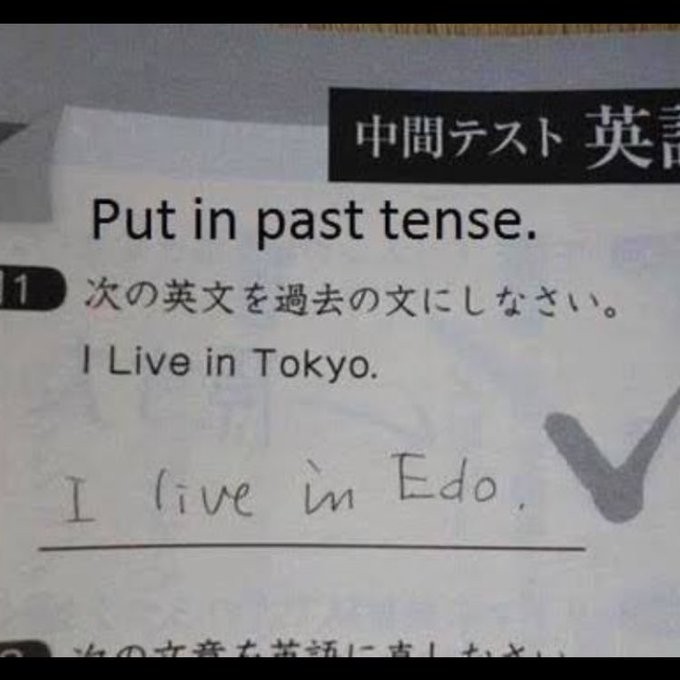 中間テスト 英
Put in past tense.
次の英文を過去の文にしなさい。
I Live in Tokyo.
I live in Edo.
次の文章を英語に直しなさい